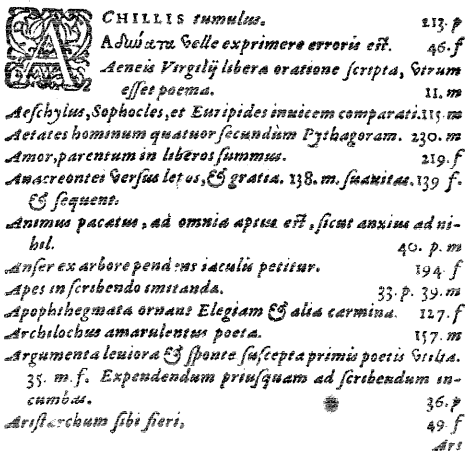 ACHILLIS tumulus. 213. p
Ἀδυύατα velle exprimere erroris est. 46. f
Aeneis Virgilij libera oratione scripta, vtrum
esset poema. 11. m
Aeschylus, Sophocles, et Euripides inuicem comparati. 115. m
Aetates hominum quatuor secundùm Pythagoram. 230. m
Amor, parentum in liberos summus. 219. f
Anacreontei versus letos, & gratia. 138. m. suauitas. 139 f.
& sequent.
Animus pacatus, ad omnia aptus est, sicut anxius ad ni-
hil. 40. p. m
Anser ex arbore pendens iaculis petitur. 194. f
Apes in scribendo imitanda. 33. p. 39. m
Apophthegmata ornant Elegiam & alia carmina. 127. f
Archilochus amarulentus poeta. 157. m
Argumenta leuiora & sponte suscepta primis poetis vtilia.
35. m. f. Expendendum priusquam ad scribendum in-
cumbas. 36. p
Aristarchum sibi fieri, 49. f
Ars